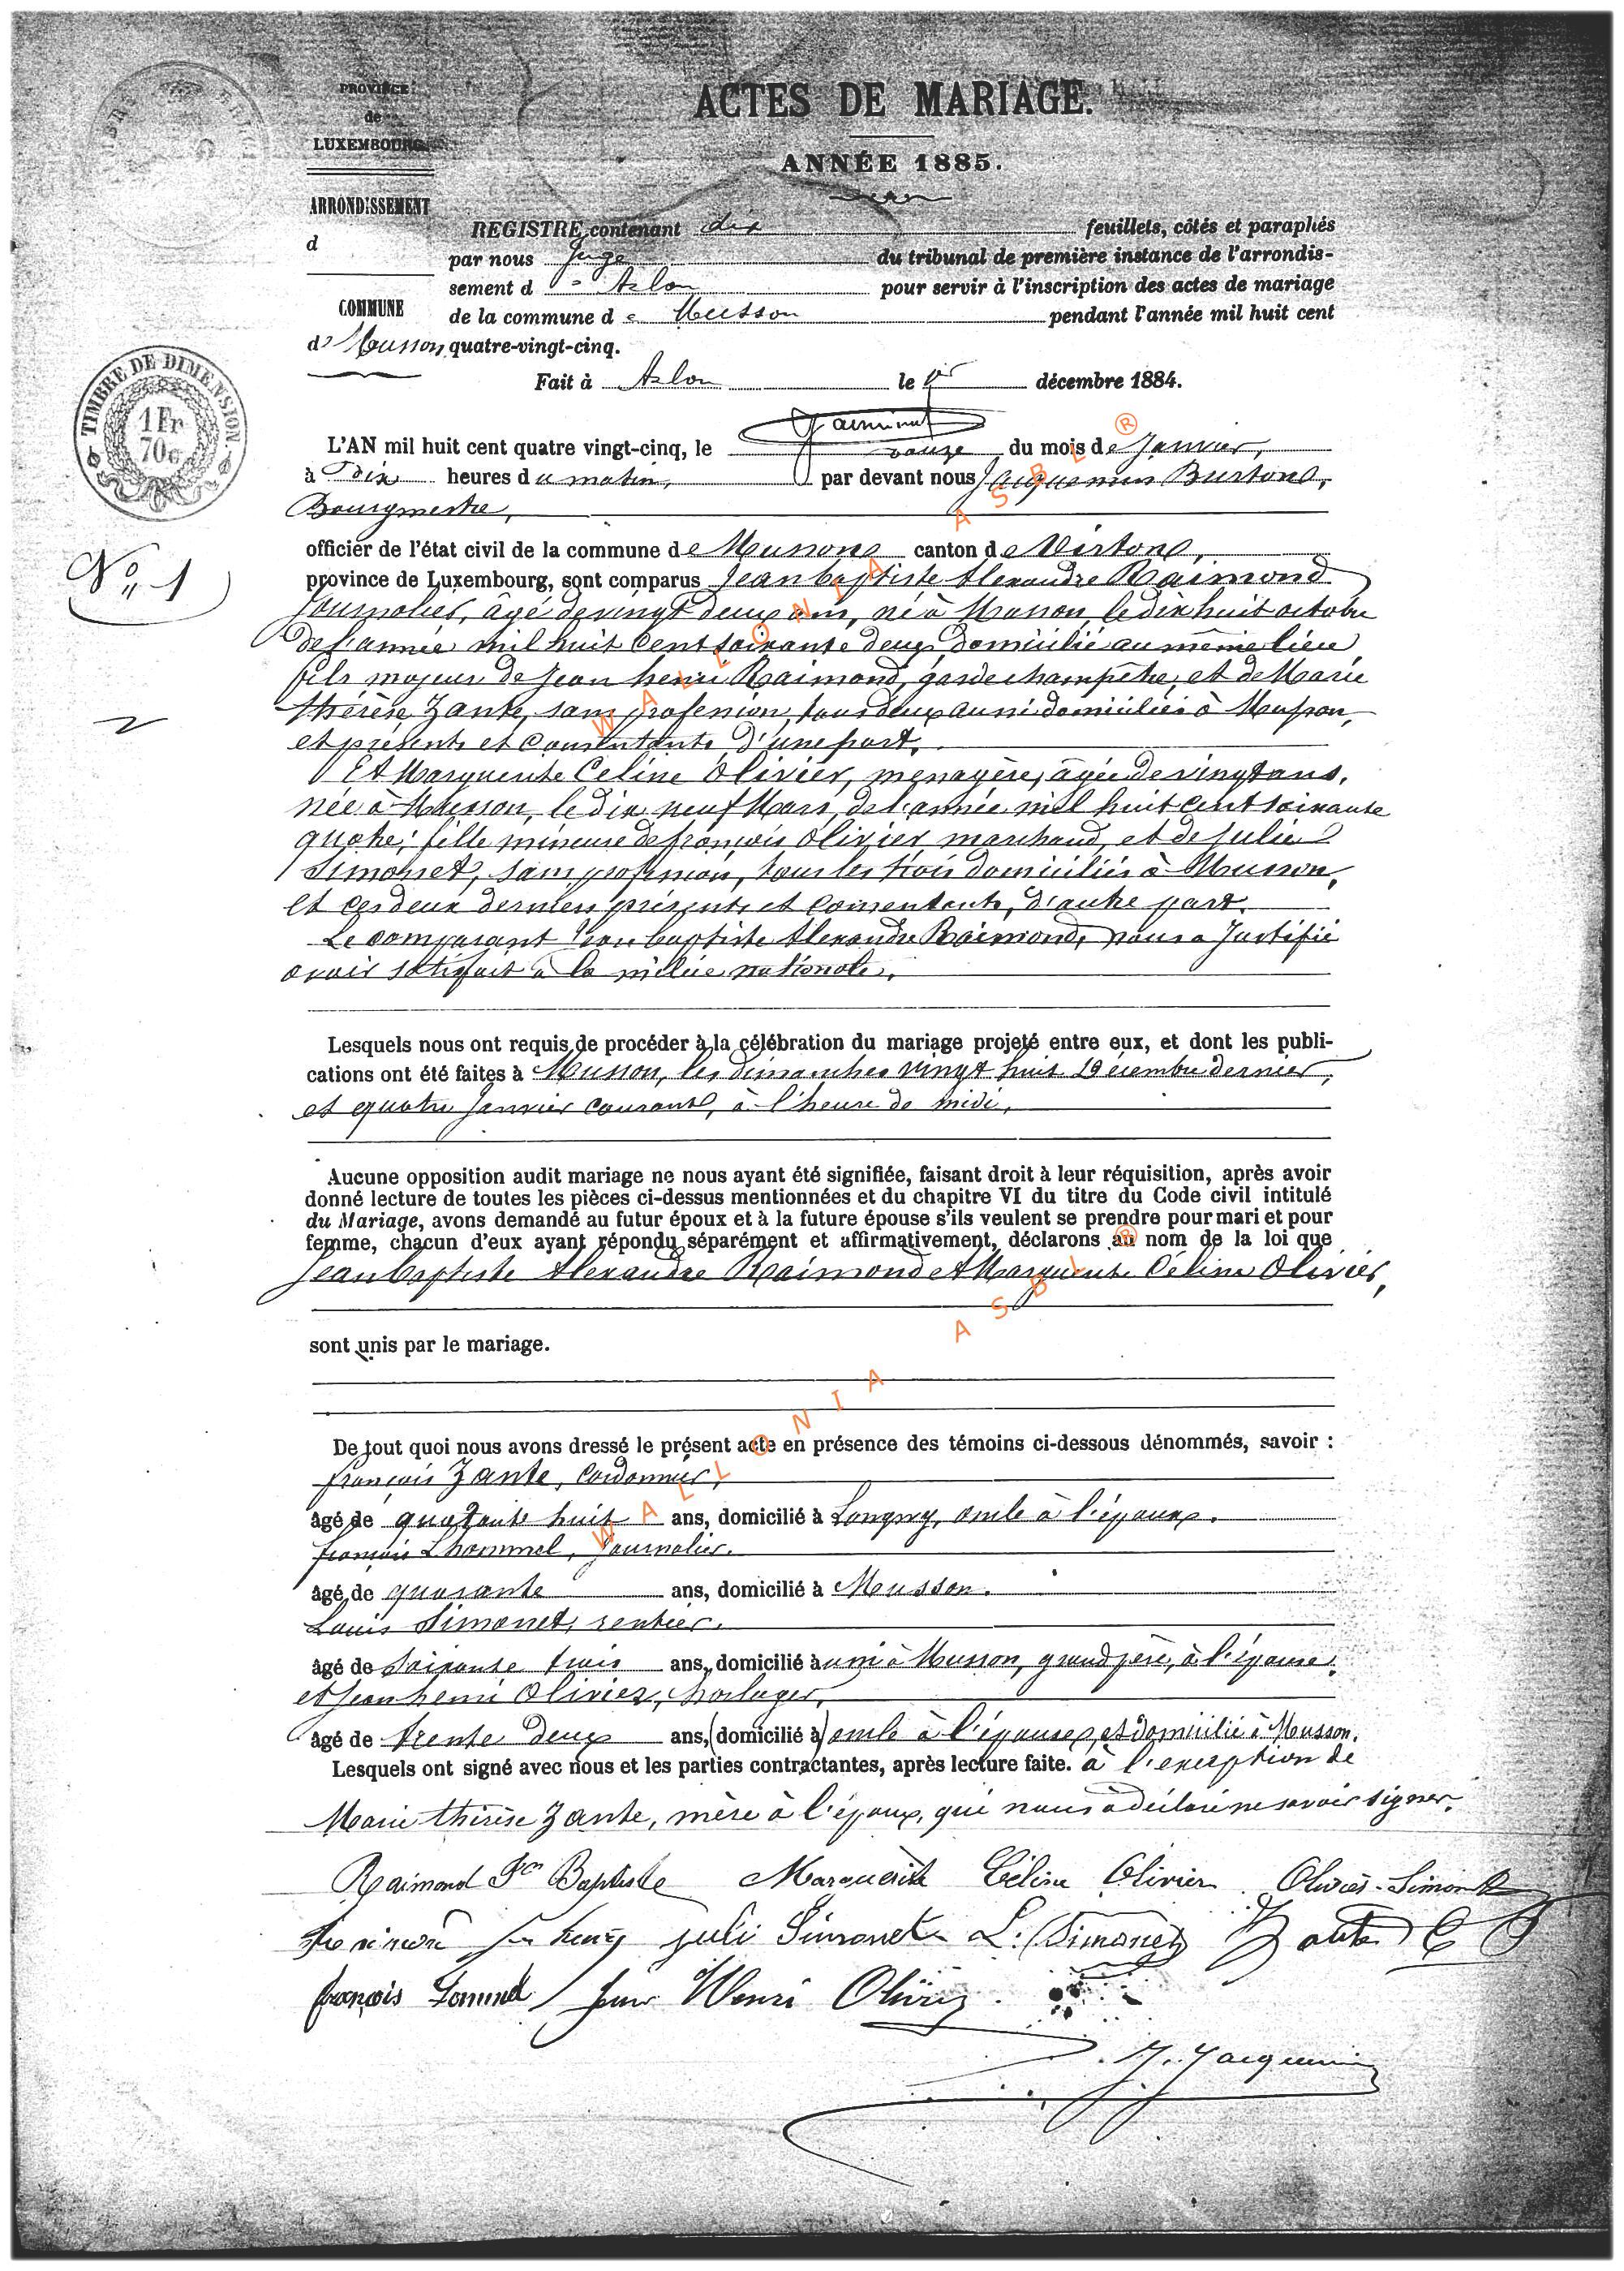 PROVINCE
de
LUXEMBOURG.
ARRONDISSEMENT
d
COMMUNE
d' Musson
ACTES DE MARIAGE.
ANNÉE 1885.
REGISTRE contenant dix feuillets, côtés et paraphés
par nous Juge du tribunal de première instance de l'arrondis-
sement d Arlon pour servir à l'inscription des actes de mariage
de la commune de Musson pendant l'année mil huit cent
quatre-vingt-cinq.
Fait à Arlon le décembre 1884.
TIMBRE DE DIMENSION.
1 Fr
70c
L'AN mil huit cent quatre vingt-cinq, le douze du mois de Janvier,
à Dix heures du matin, par devant nous Jacquemin Burton,
Bourgmestre,
No 1
officier de l'état civil de la commune de Musson canton de Virton,
province de Luxembourg, sont comparus Jean baptiste Alexandre Raimond
Journalier, âgé de vingt deux ans, né à Musson, le dix huit octobre
de l'année mil huit Cent soixante deux, Domicilié au même lieu
fils majeur de Jean henri Raimond, garde champêtre, et de Marie
thérèse Zante, sans profession, tous deux aussi domiciliés à Musson,
et présents et consentants, D'une part.
Et Marguerite Celine Olivier, menagère, âgée de vingt ans,
née à Musson, le dix neuf Mars, de l'année mil huit cent soixante
quatre; fille mineure de françois Olivier, marchand, et de Julie
Simonet, sans profession, tous les trois domiciliés à Musson,
et ces deux derniers présents et consentants, d'autre part.
Le comparant Jean baptiste Alexandre Raimond, nous a Justifié
avoir satisfait à la milice nationale.
Lesquels nous ont requis de procéder à la célébration du mariage projeté entre eux, et dont les publi-
cations ont été faites à Musson, les dimanches vingt huit Décembre dernier,
et quatre Janvier courant, à l'heure de midi,
Aucune opposition audit mariage ne nous ayant été signifiée, faisant droit à leur réquisition, après avoir
donné lecture de toutes les pièces ci-dessus mentionnées et du chapitre VI du titre du Code civil intitulé
du Mariage, avons demandé au futur époux et à la future épouse s'ils veulent se prendre pour mari et pour
femme, chacun d'eux ayant répondu séparément et affirmativement, déclarons au nom de la loi que
Jean baptiste Alexandre Raimond et Marguerite Céline Olivier,
sont unis par le mariage.
De tout quoi nous avons dressé le présent acte en présence des témoins ci-dessous dénommés, savoir :
françois Zante, Cordonnier,
âgé de quarante huit ans, domicilié à Longwy, oncle à l'époux.
françois Lhommel, Journalier.
âgé de quarante ans, domicilié à Musson.
Louis Simonet, rentier.
âgé de Soixante trois ans, domicilié aussi à Musson, grand père, à l'épouse.
et Jean henri Olivier, horloger,
âgé de trente deux ans, (domicilié à) oncle à l'épouse, et domicilié à Musson.
Lesquels ont signé avec nous et les parties contractantes, après lecture faite. à l'exception de
Marie thérèse Zante, mère à l'époux, qui nous a déclaré ne savoir signer.
Raimond Jn Baptiste Marguerite Céline Olivier Olivier-Simonet
juli Simonet L. Simonet Zante
françois Jean Henri Olivier
J. Jacquemin
WALLONIA ASBL ®
WALLONIA ASBL ®